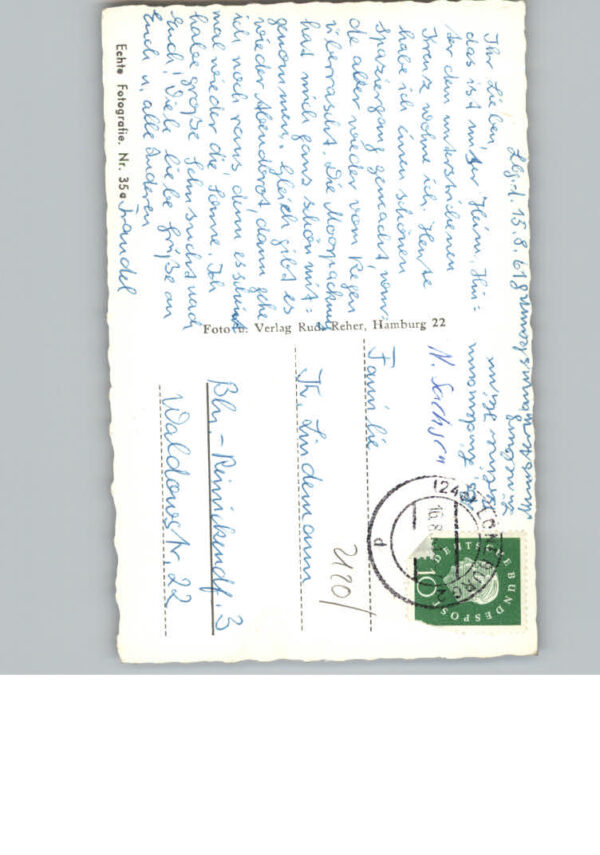 Lbg. d. 15.8.61
Ihr Lieben,
das ist unser Heim, Hin-
ter dem unterstrichenen
Kreuz wohne ich. Heute
habe ich einen schönen
Spaziergang gemacht, wur-
de aber wieder vom Regen
überrascht. Die Moorpackung
hat mich ganz schön mit-
genommen. Gleich gibt es
wieder Abendbrot, dann gehe
ich noch raus, denn es scheint
mal wieder die Sonne. Ich
habe große Sehnsucht nach
Euch! Viele liebe Grüße an
Euch u. alle Anderen
Traudel
Echte Fotografie. Nr. 35a
Foto u. Verlag Rud. Reher, Hamburg 22
Lüneburg
N. Sachsen
Familie
K. Lindemann
Bln.-Reinickendf. 3
Waldowstr. 22
2120/
LÜNEBURG
16.8.
d
DEUTSCHE BUNDESPOST
10